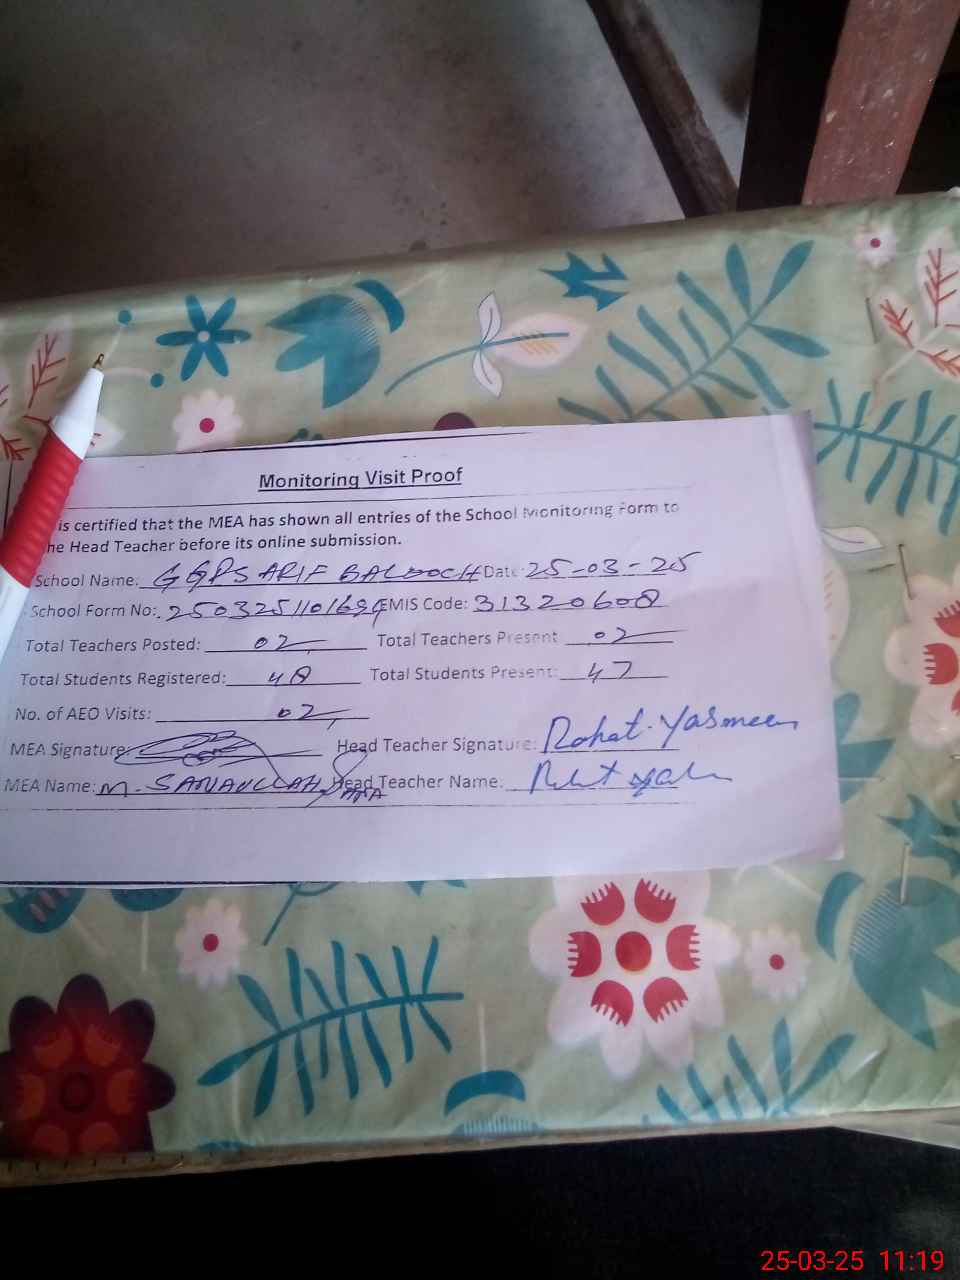 Monitoring Visit Proof
is certified that the MEA has shown all entries of the School Monitoring Form to
he Head Teacher before its online submission.
School Name: GGPS ARIF BALOOCH Date: 25-03-25
School Form No: EMIS Code: 31320608
Total Teachers Posted: 02 Total Teachers Present 02
Total Students Registered: 48 Total Students Present: 47
No. of AEO Visits: 02
MEA Signature: Head Teacher Signature: Rahat Yasmeen
MEA Name: M. SANAULLAH Head Teacher Name:
25-03-25 11:19